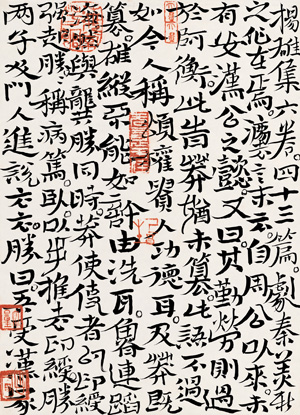 楊雄集六卷。四十三篇。劇秦美新
之作在焉。灋言末云。自周公以來未
有漢公之懿。又曰。其勤勞則過
於阿衡。此莽猶未篡。此語不過
如今人稱頌權貴人功德耳。及莽既
篡。雄縱不能如許由洗耳。魯連蹈
海。與龔勝同時。莽使使者印綬
強起勝。稱病篤。臥以手推去印綬。勝
兩子及門人進說云云。勝曰。吾受漢家